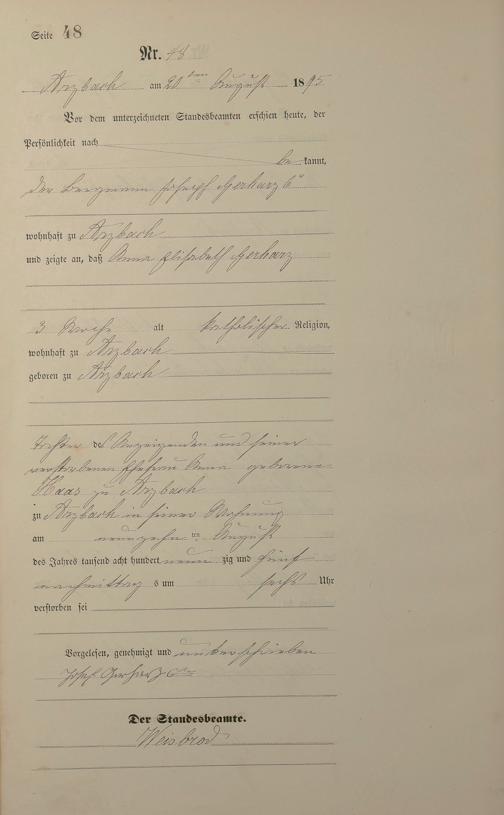 Seite 48
Nr. 48
Arzbach am 20ten August 1895
Vor dem unterzeichneten Standesbeamten erschien heute, der
Persönlichkeit nach
be kannt,
der Bergmann Joseph Gerharz 6r
wohnhaft zu Arzbach
und zeigte an, daß Anna Elisabeth Gerharz
3 Woche alt katholischer Religion,
wohnhaft zu Arzbach
geboren zu Arzbach
Tochter des Anzeigenden und seiner
verstorbenen Ehefrau Anna geborene
Haas zu Arzbach
zu Arzbach in seiner Wohnung
am neunzehnten August
des Jahres tausend acht hundert neunzig und fünf
nachmittags um sechs Uhr
verstorben sei
Vorgelesen, genehmigt und unterschrieben
Josef Gerharz
Der Standesbeamte.
Weisbrod